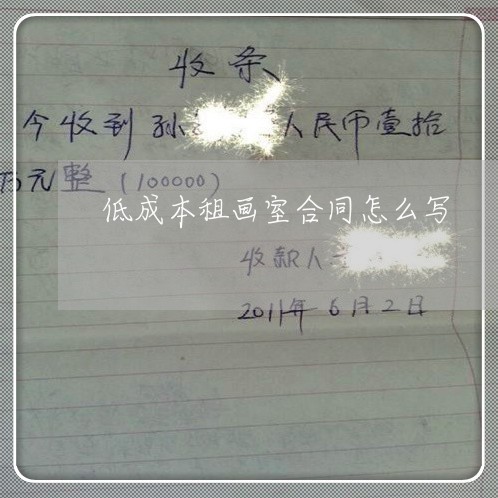 收条
今收到孙 人民币壹拾
万元整(100000)
低成本租画室合同怎么写
收款人
2011年6月2日